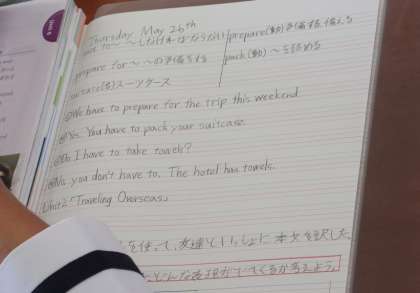 Thursday May 26th
have to~ ~しなければならない prepare(動)準備する、備える
prepare for~ ~の準備をする pack(動) ~を詰める
suitcase(名)スーツケース
We have to prepare for the trip this weekend.
Yes. You have to pack your suitcase.
Do I have to take towels?
No, you don't have to. The hotel has towels.
Unit2「Traveling Overseas」
を使って、友達といっしょに本文を訳した
どんな表現がでてくるか考えよう。